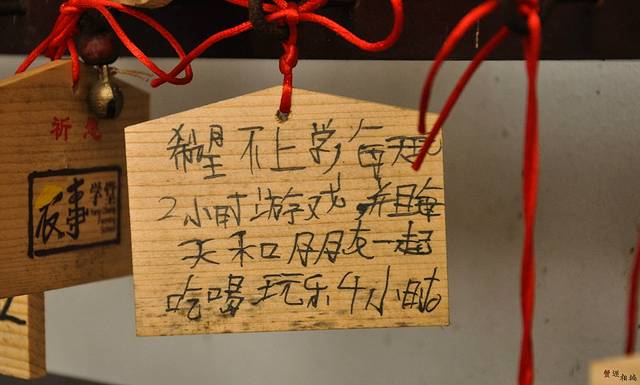 希望不上学每天玩
2小时游戏,并且每
天和朋友一起
吃喝玩乐4小时
祈愿
夜事
学堂
2